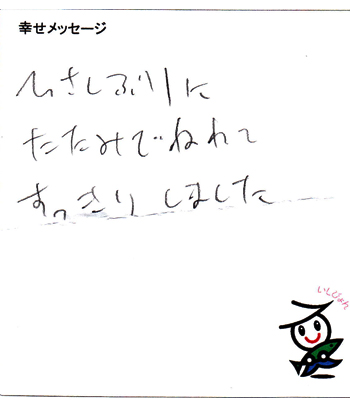 幸せメッセージ
ひさしぶりに
たたみでねれて
すっきりしました
いしぴょん